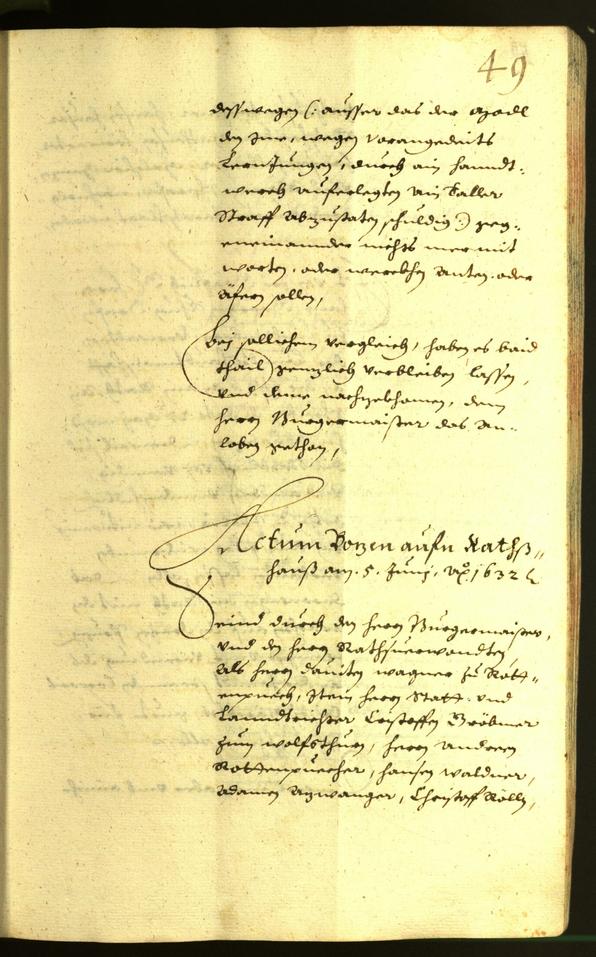 49
desswegen (: ausser das der Gsöll
den Jme, wegen vorangedeits
Lernjungen, durch ain Handt-
werch auferlegten ain taller
Straff abzustaten schuldig :) geg-
eneinannder nichts mer mit
worten, oder werckhen anten, oder
äfern sollen,
Bej sollichem vergleich, haben es baid
thail genzlich verbleiben lassen,
vnd deme nachzekhomen, dem
herrn Burgermaister das an-
loben gethon,
Actum Botzen aufn Rathß-
hauß am 5. Junij, Ao 1632
Seind durch den herrn Burgermaister,
vnd den herrn Rathsuerwondten
als herrn Dauiten wagner zu Rott-
enpuech, Item herrn Statt- vnd
Lanndtrichter Cristoffen
zum wolfsthurn, herrn Andreen
Rottenpuecher, Hansen Waldner,
Adamen Azwanger, Christoff Rölln,